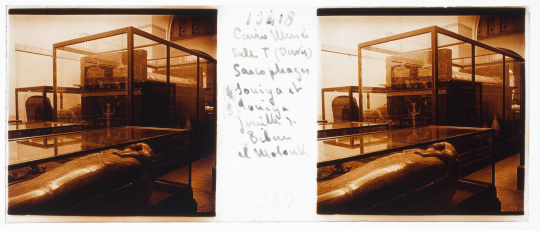 13418
Cairo Musée
Salle T (Davis)
Sarcophages
Touiya et
Youiya
fouilles
Biban
el Molouk